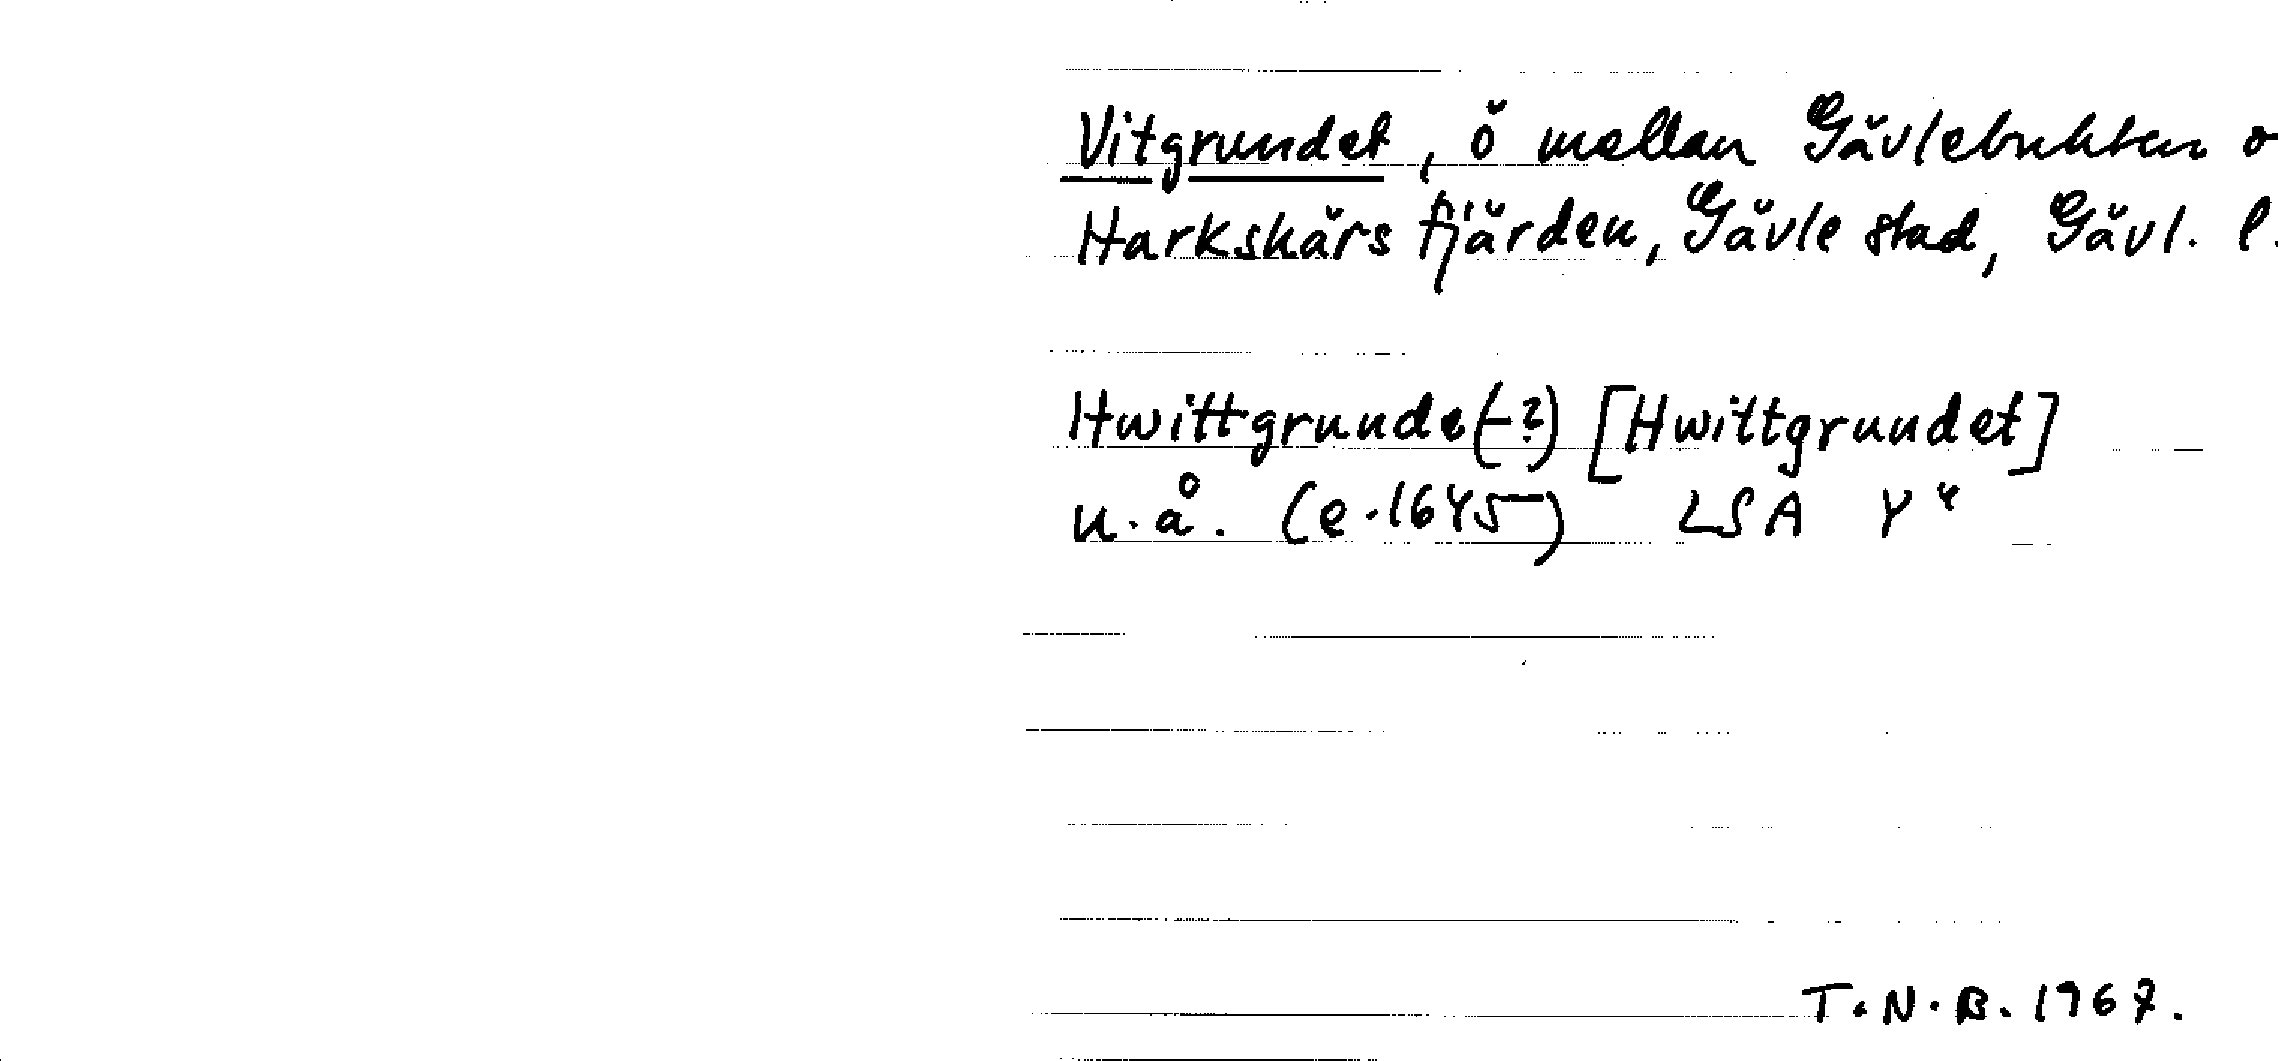 Vitgrundet, ö mellan Gävlebukten o
Harkskärs fjärden, Gävle stad, Gävl. l.
Hwittgrunde(-?) [Hwittgrundet]
u.å. (e.1645) LSA Y⁴
T.N.B. 1967.